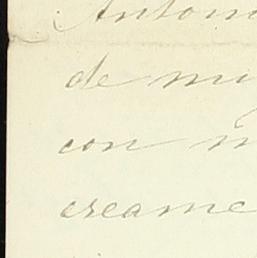 Antoni
de mi
con m
creame